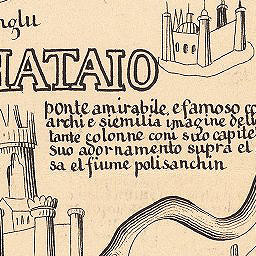 nglu
HATAIO
ponte amirabile, e famoso co
archi e siemilia imagine dell
tante colonne coni suo capitel
suo adornamento supra el
sa el fiume polisanchin